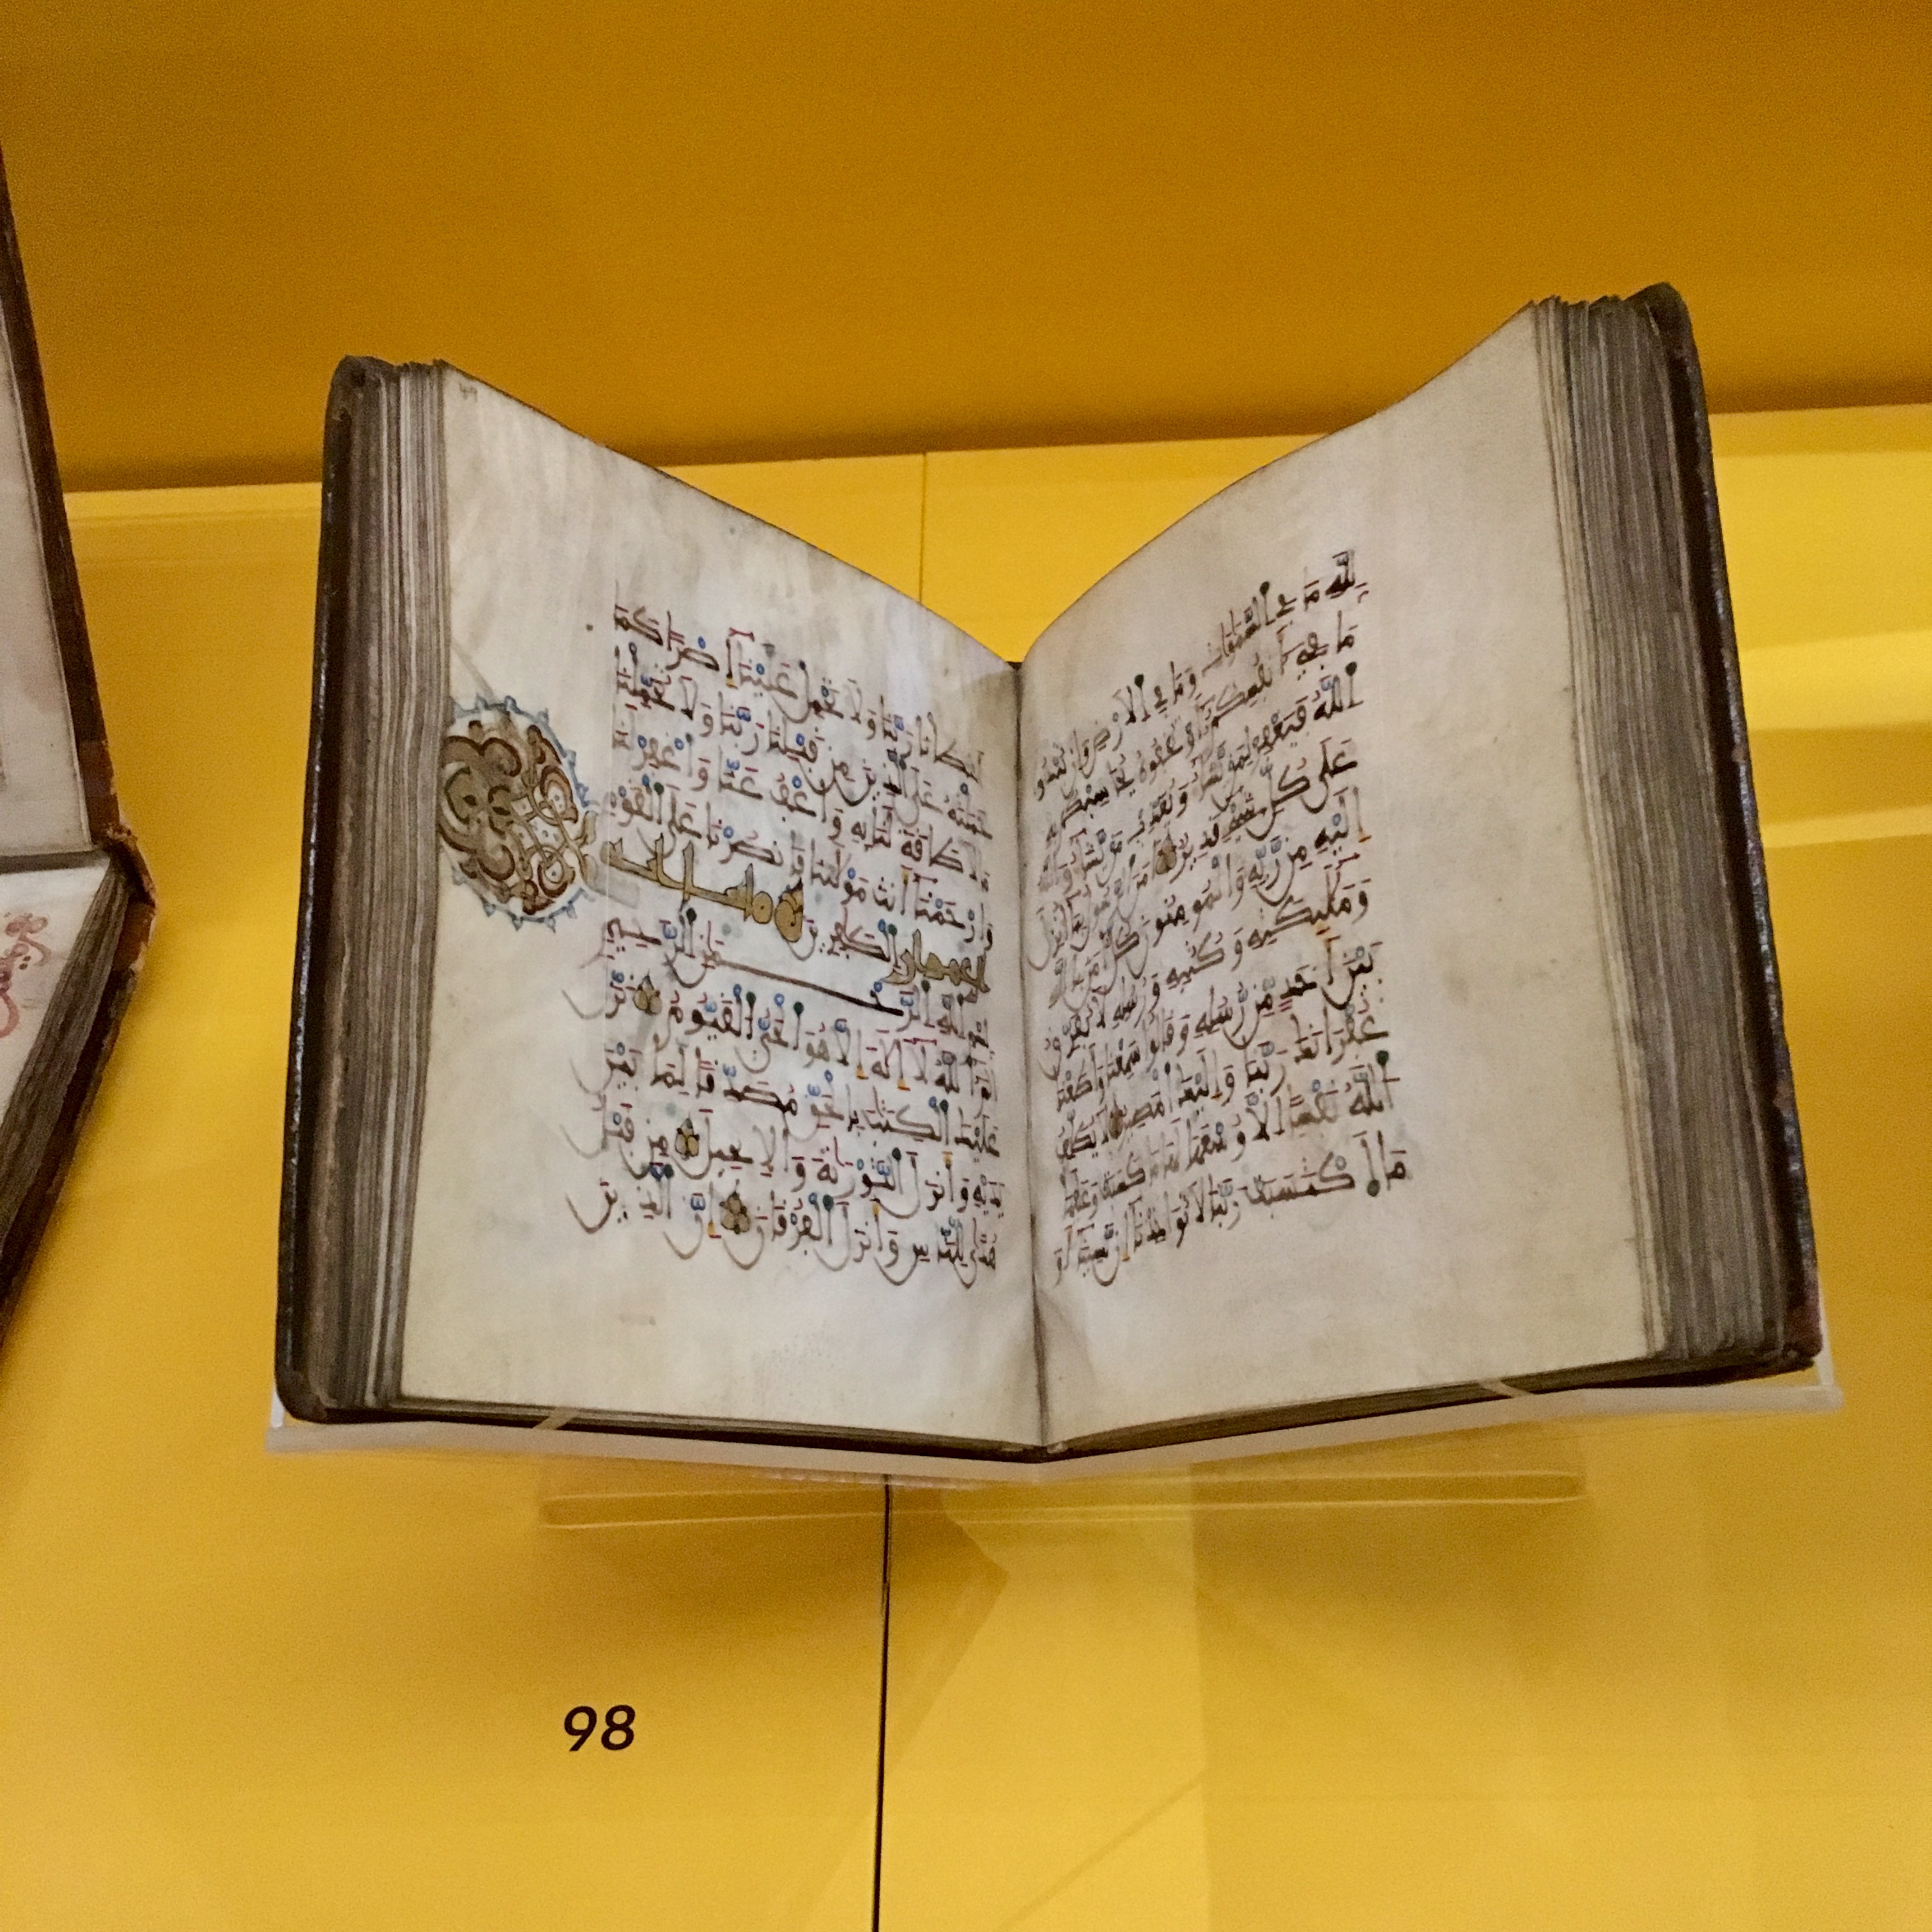 لِلَّهِ مَا فِي السَّمَٰوَاتِ وَمَا فِي الْأَرْضِ وَإِن تُبْدُوا
مَا فِي أَنفُسِكُمْ أَوْ تُخْفُوهُ يُحَاسِبْكُم بِهِ
اللَّهُ فَيَغْفِرْ لِمَن يَشَاءُ وَيُعَذِّبْ مَن يَشَاءُ وَاللَّهُ
عَلَى كُلِّ شَيْءٍ قَدِيرٌ ءَامَنَ الرَّسُولُ بِمَا أُنزِلَ
إِلَيْهِ مِن رَّبِّهِ وَالْمُومِنُونَ كُلٌّ ءَامَنَ بِاللَّهِ
وَمَلَٰئِكَتِهِ وَكُتُبِهِ وَرُسُلِهِ لَا نُفَرِّقُ
بَيْنَ أَحَدٍ مِّن رُّسُلِهِ وَقَالُوا سَمِعْنَا وَأَطَعْنَا
غُفْرَانَكَ رَبَّنَا وَإِلَيْكَ الْمَصِيرُ لَا يُكَلِّفُ
اللَّهُ نَفْسًا إِلَّا وُسْعَهَا لَهَا مَا كَسَبَتْ وَعَلَيْهَا
مَا اكْتَسَبَتْ رَبَّنَا لَا تُوَاخِذْنَا إِن نَّسِينَا أَوْ
أَخْطَأْنَا رَبَّنَا وَلَا تَحْمِلْ عَلَيْنَا إِصْرًا كَمَا
حَمَلْتَهُ عَلَى الَّذِينَ مِن قَبْلِنَا رَبَّنَا وَلَا تُحَمِّلْنَا
مَا لَا طَاقَةَ لَنَا بِهِ وَاعْفُ عَنَّا وَاغْفِرْ لَنَا
وَارْحَمْنَا أَنتَ مَوْلَٰنَا فَانصُرْنَا عَلَى الْقَوْمِ
الْكَٰفِرِينَ
عمران
بِسْمِ اللَّهِ الرَّحْمَٰنِ الرَّحِيمِ
الٓمٓ اللَّهُ لَا إِلَٰهَ إِلَّا هُوَ الْحَيُّ الْقَيُّومُ نَزَّلَ
عَلَيْكَ الْكِتَٰبَ بِالْحَقِّ مُصَدِّقًا لِّمَا بَيْنَ
يَدَيْهِ وَأَنزَلَ التَّوْرَىٰةَ وَالْإِنجِيلَ مِن قَبْلُ
هُدًى لِّلنَّاسِ وَأَنزَلَ الْفُرْقَانَ إِنَّ الَّذِينَ
98